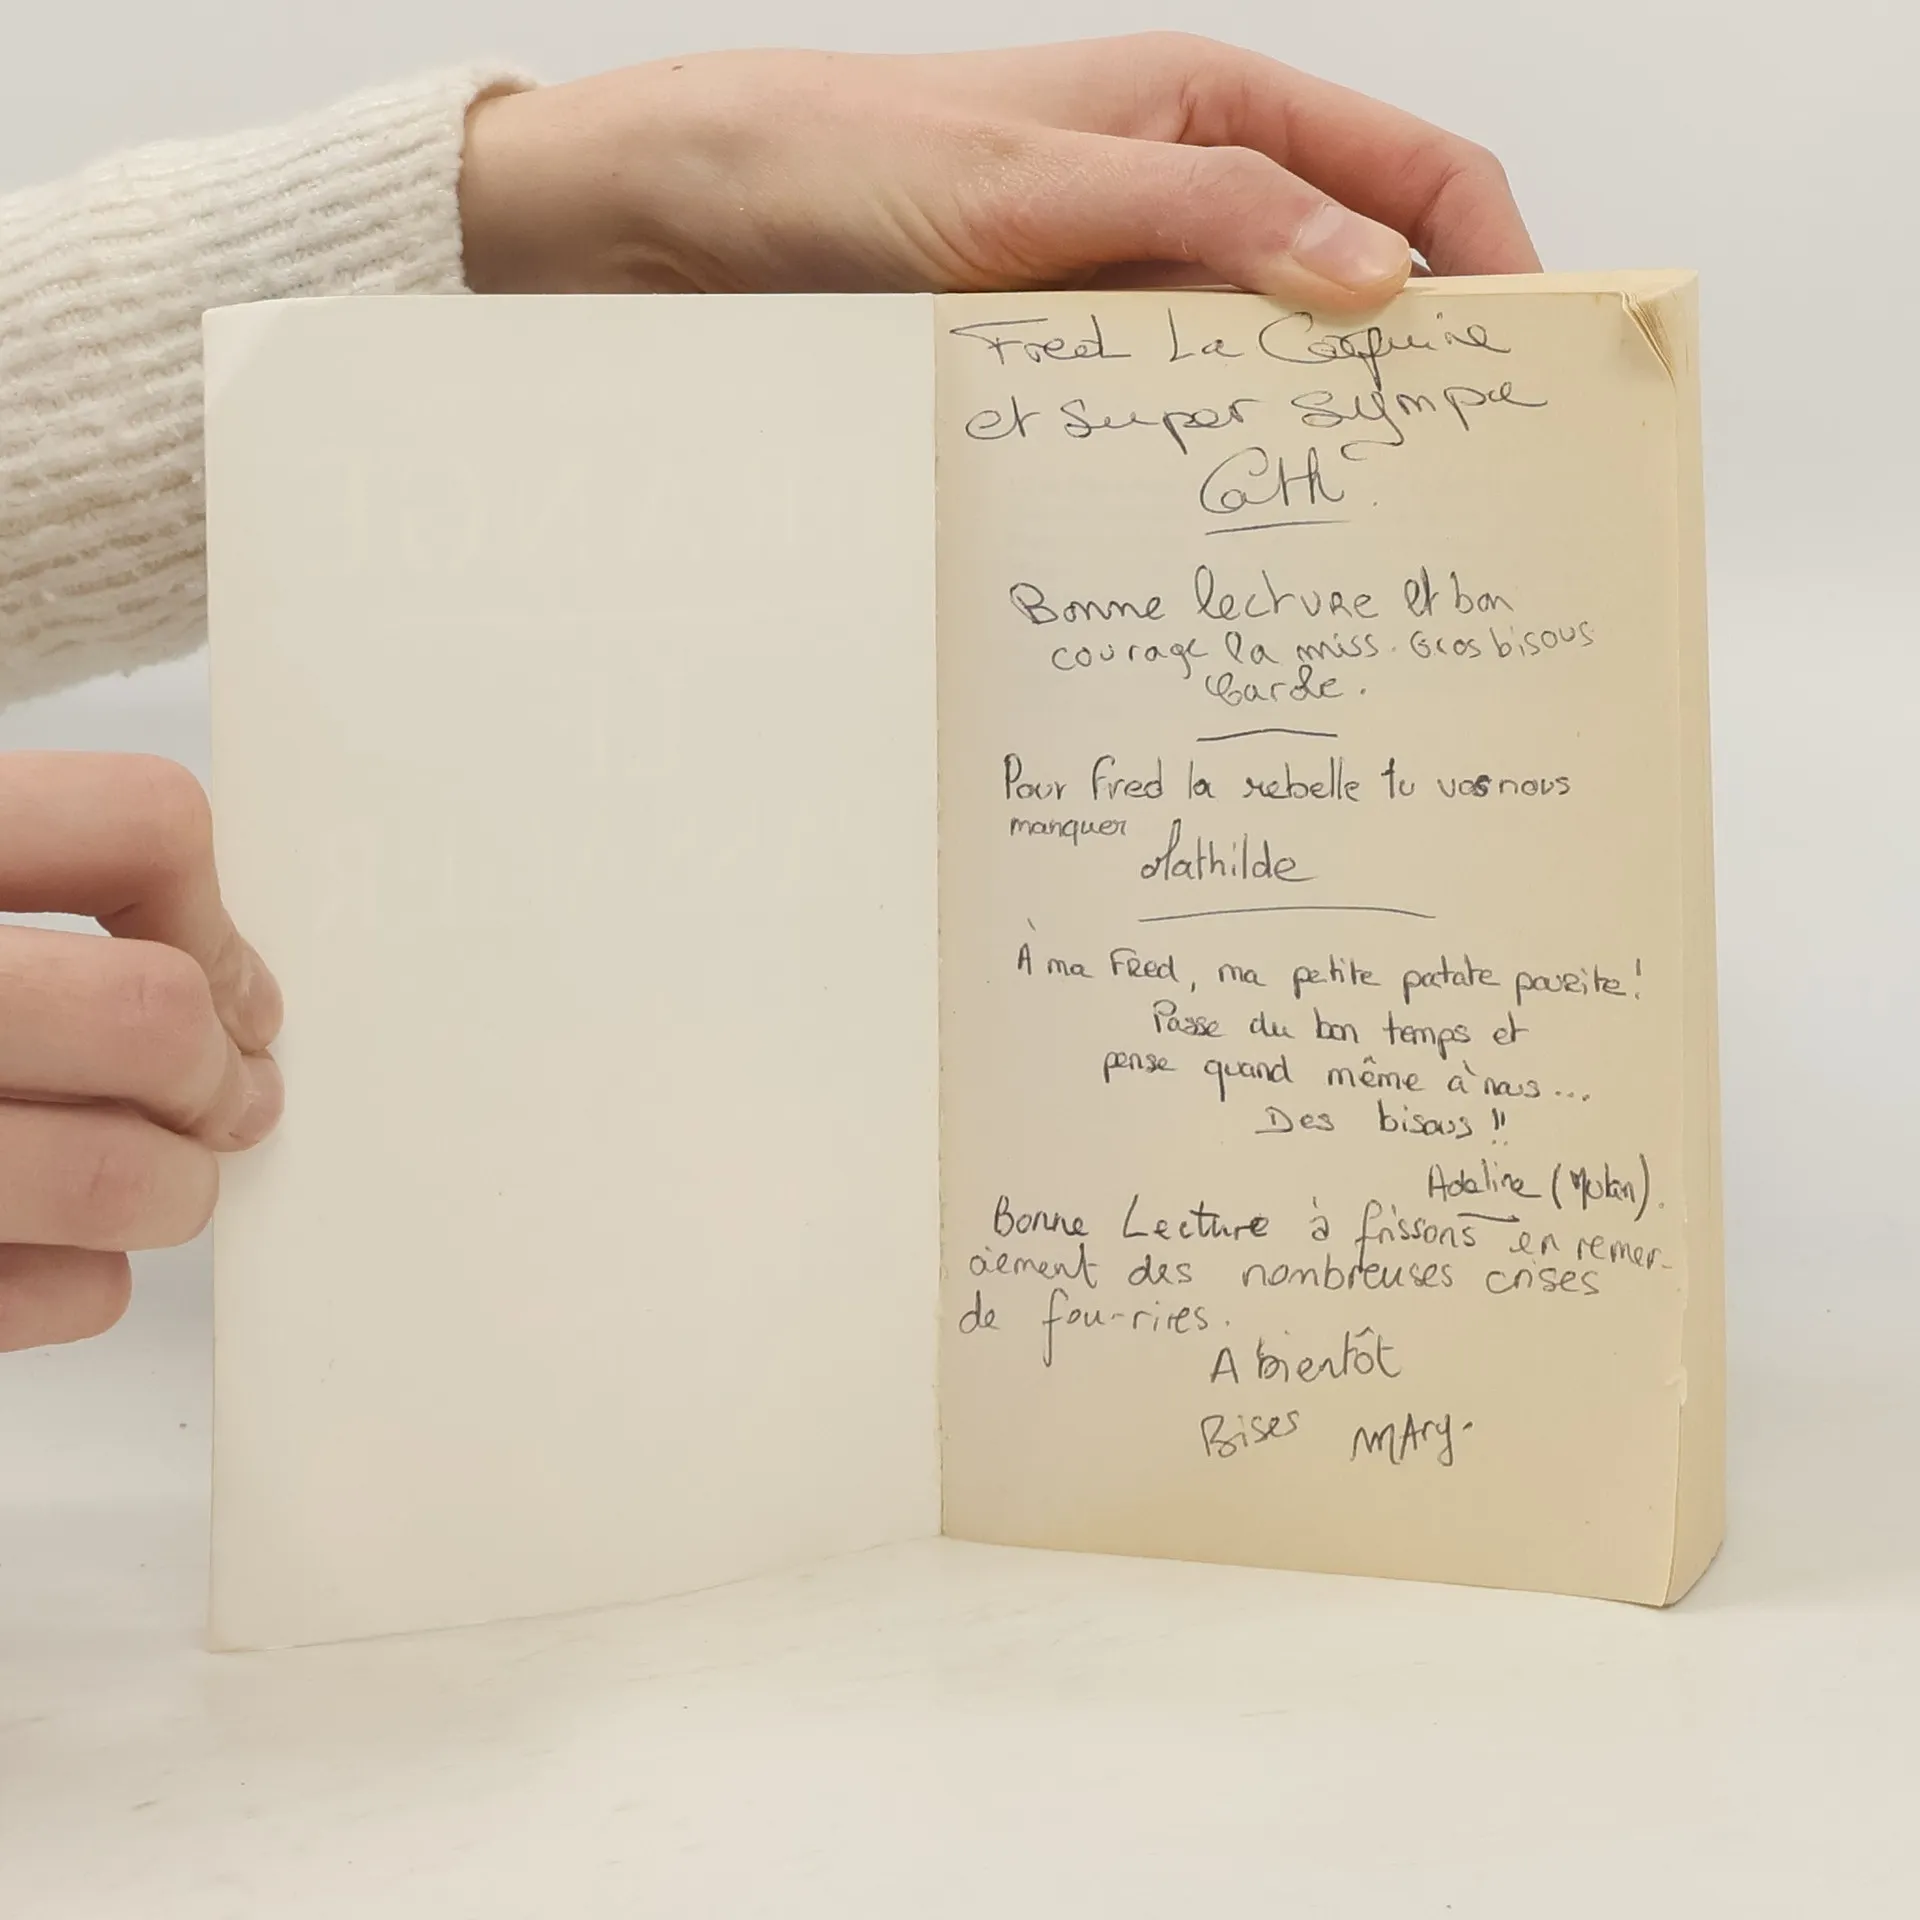 Fred La Coquine
et super sympa
Cath
Bonne lecture et bon
courage la miss. Gros bisous
Carole.
Pour fred la rebelle tu vas nous
manquer
Mathilde
À ma FRED, ma petite patate pourite!
Passe du bon temps et
pense quand même à nous...
Des bisous !!
Adeline (Mulan).
Bonne Lecture à frissons en remer-
ciement des nombreuses crises
de fou-rires.
A bientôt
Bises MAry.